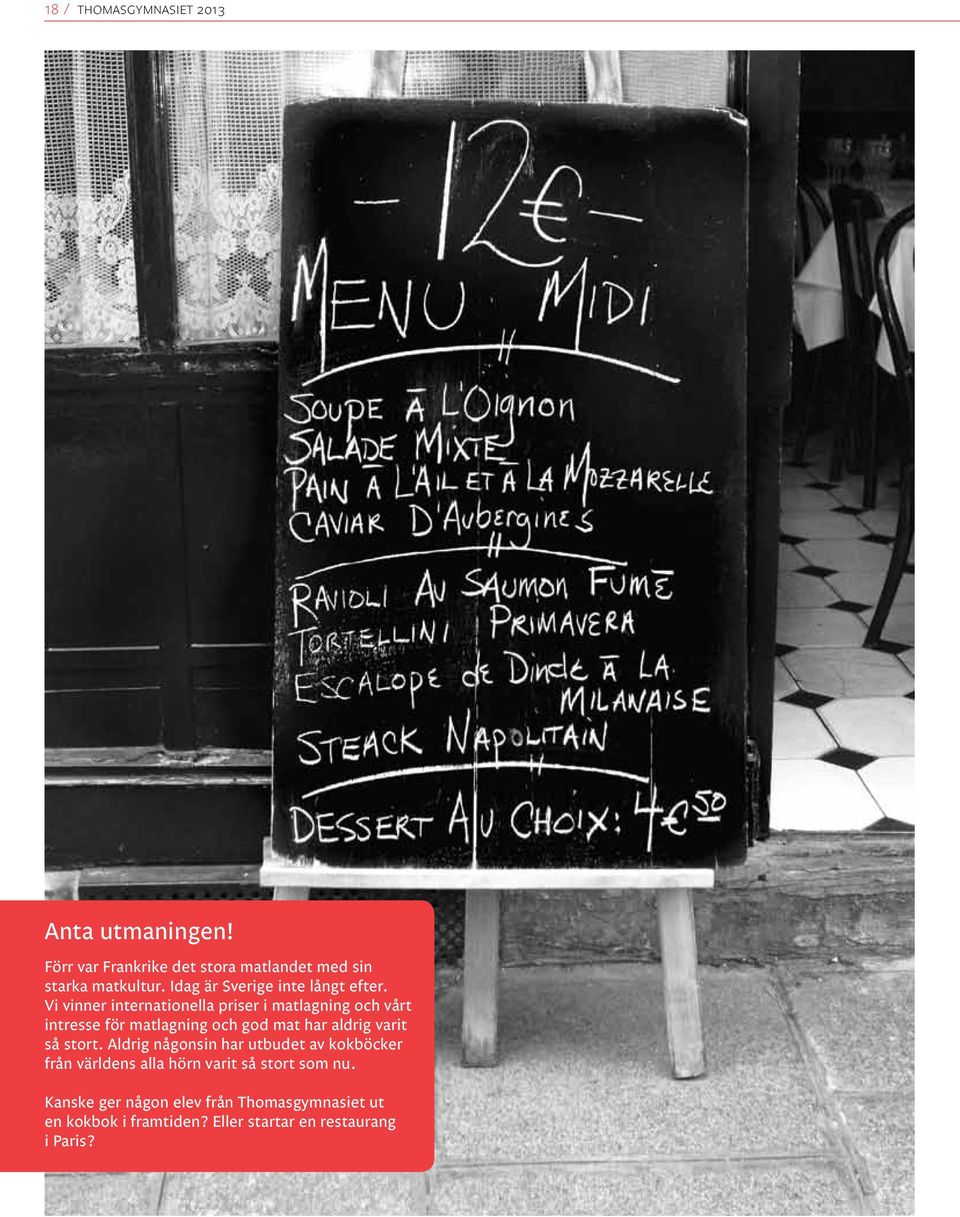 18 / THOMASGYMNASIET 2013
- 12€ -
MENU MIDI
SOUPE A L'OIGNON
SALADE MIXTE
PAIN A L'AIL ET A LA MOZZARELLE
CAVIAR D'AUBERGINES
RAVIOLI AU SAUMON FUME
TORTELLINI PRIMAVERA
ESCALOPE de DINDE A LA
MILANAISE
STEACK NAPOLITAIN
DESSERT AU CHOIX: 4€50
Anta utmaningen!
Förr var Frankrike det stora matlandet med sin
starka matkultur. Idag är Sverige inte långt efter.
Vi vinner internationella priser i matlagning och vårt
intresse för matlagning och god mat har aldrig varit
så stort. Aldrig någonsin har utbudet av kokböcker
från världens alla hörn varit så stort som nu.
Kanske ger någon elev från Thomasgymnasiet ut
en kokbok i framtiden? Eller startar en restaurang
i Paris?